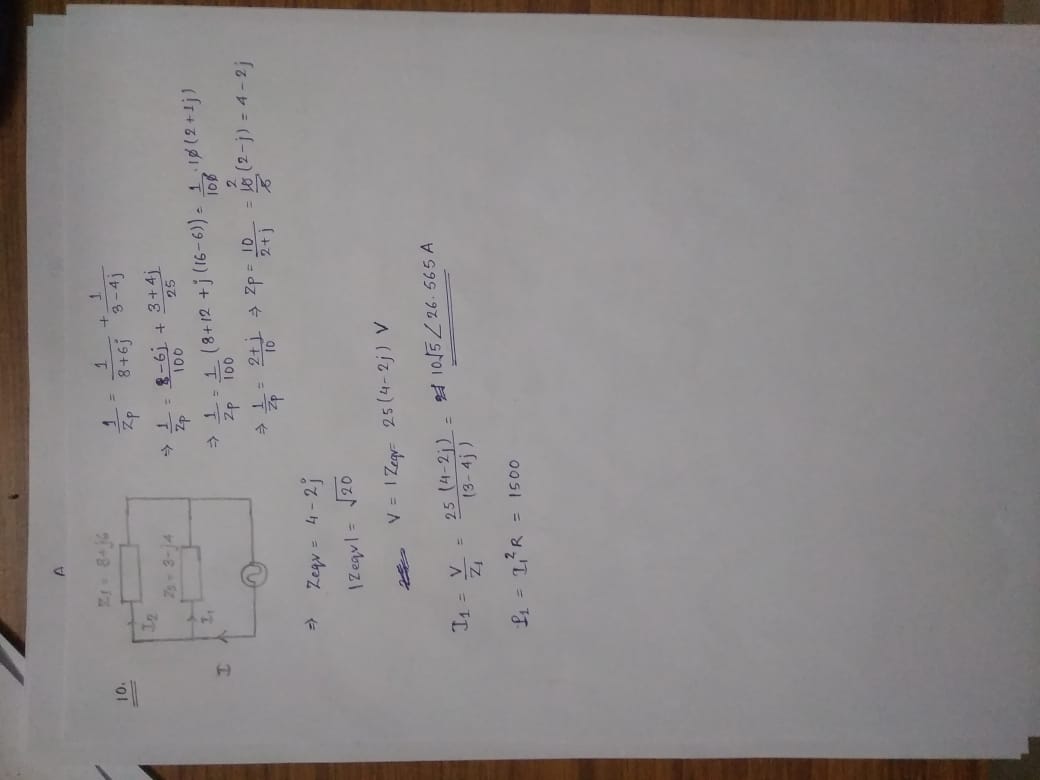 A
10.
Z1 = 8+j6
I2
Z2 = 3-j4
I1
I
1/Zp = 1/(8+6j) + 1/(3-4j)
⇒ 1/Zp = (8-6j)/100 + (3+4j)/25
⇒ 1/Zp = 1/100 (8+12 + j(16-6)) = 1/100 · 10(2+1j)
⇒ 1/Zp = (2+j)/10 ⇒ Zp = 10/(2+j) = 10/5 (2-j) = 4-2j
⇒ Zeqv = 4-2j
|Zeqv| = √20
V = I Zeqv = 25(4-2j) V
I1 = V/Z1 = 25(4-2j)/(3-4j) = 10√5 ∠26.565 A
P1 = I1²R = 1500